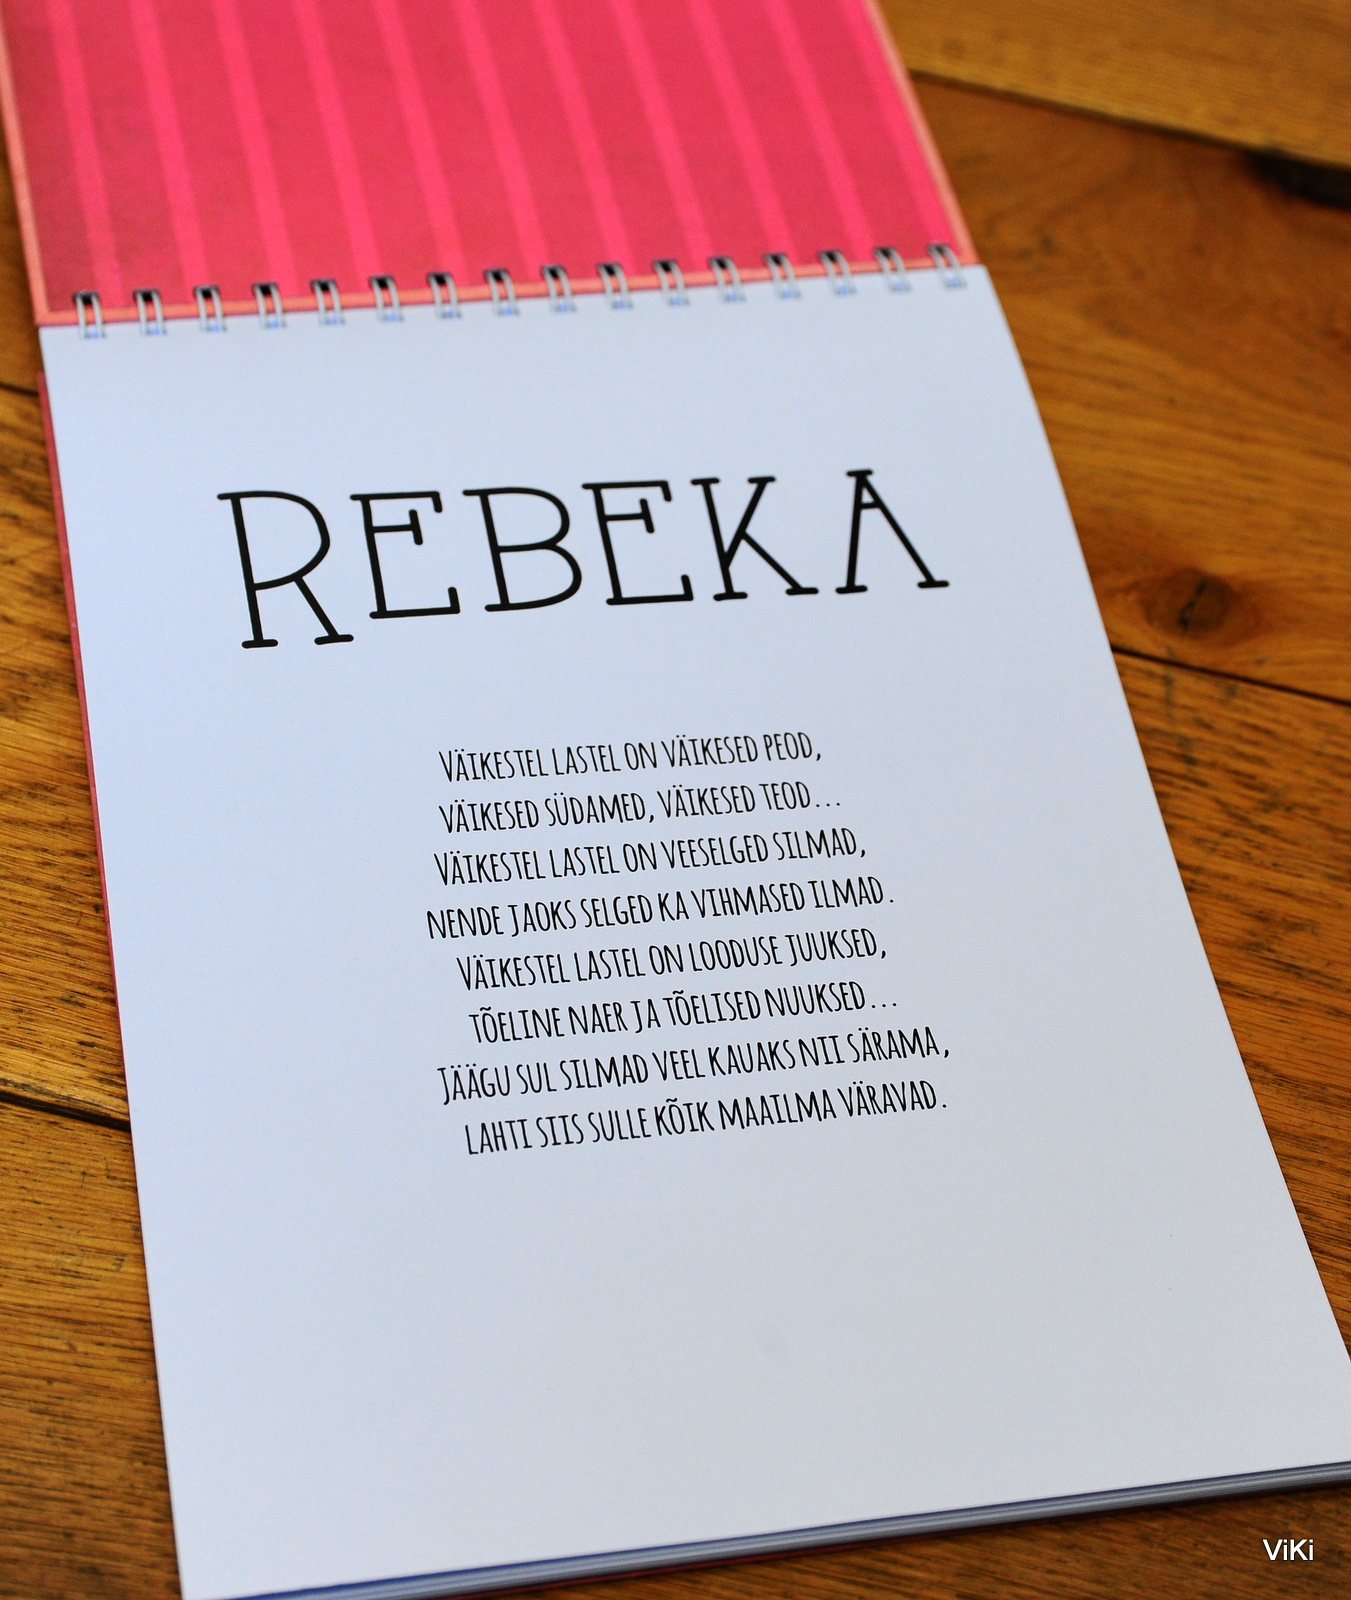 REBEKA
VÄIKESTEL LASTEL ON VÄIKESED PEOD,
VÄIKESED SÜDAMED, VÄIKESED TEOD...
VÄIKESTEL LASTEL ON VEESELGED SILMAD,
NENDE JAOKS SELGED KA VIHMASED ILMAD.
VÄIKESTEL LASTEL ON LOODUSE JUUKSED,
TÕELINE NAER JA TÕELISED NUUKSED...
JÄÄGU SUL SILMAD VEEL KAUAKS NII SÄRAMA,
LAHTI SIIS SULLE KÕIK MAAILMA VÄRAVAD.
ViKi